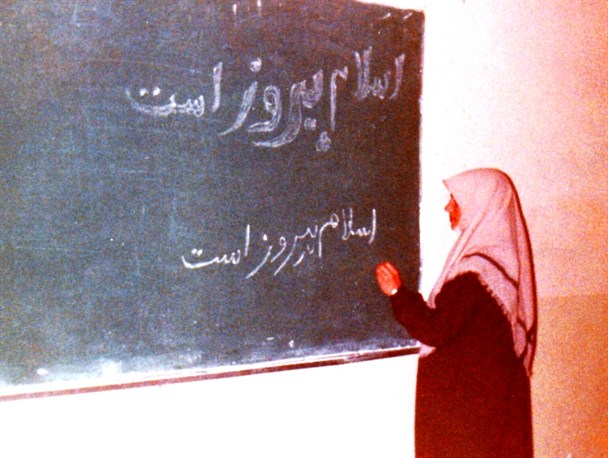 اسلام پیروز است
اسلام پیروز است